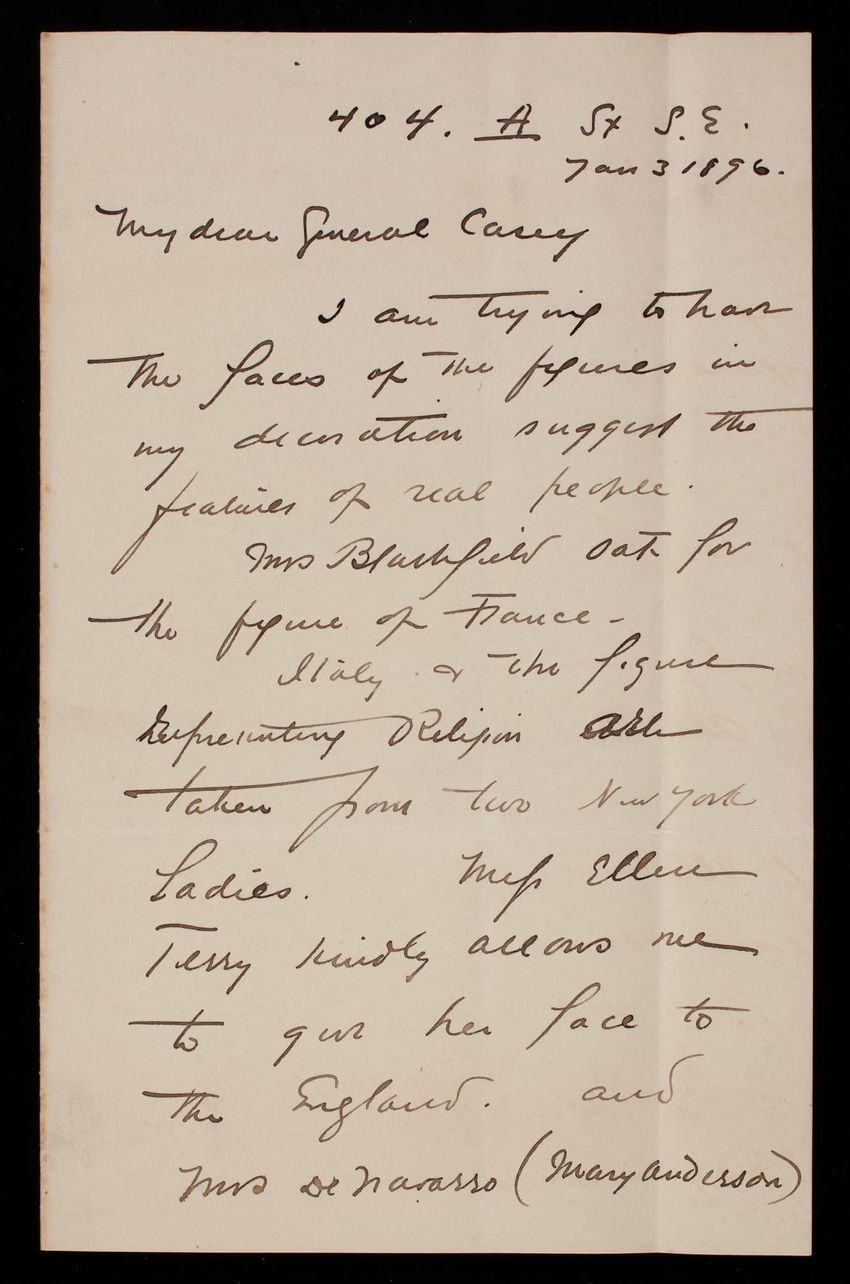 404. A St S.E.
Jan 3 1896.
My dear General Casey
I am trying to have
the faces of the figures in
my decoration suggest the
features of real people.
Mrs Blashfield sat for
the figure of France -
Italy & the figure
representing Religion are
taken from two New York
Ladies. Miss Ellen
Terry kindly allows me
to give her face to
the England. and
Mrs De Navarro (Mary Anderson)